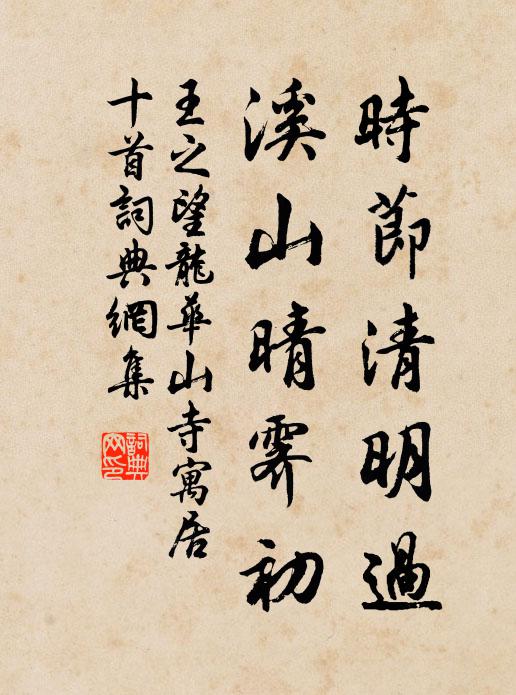 時節清明過
溪山晴霽初
王之望龍華山寺寓居
十首詞典網集
詞典
网印